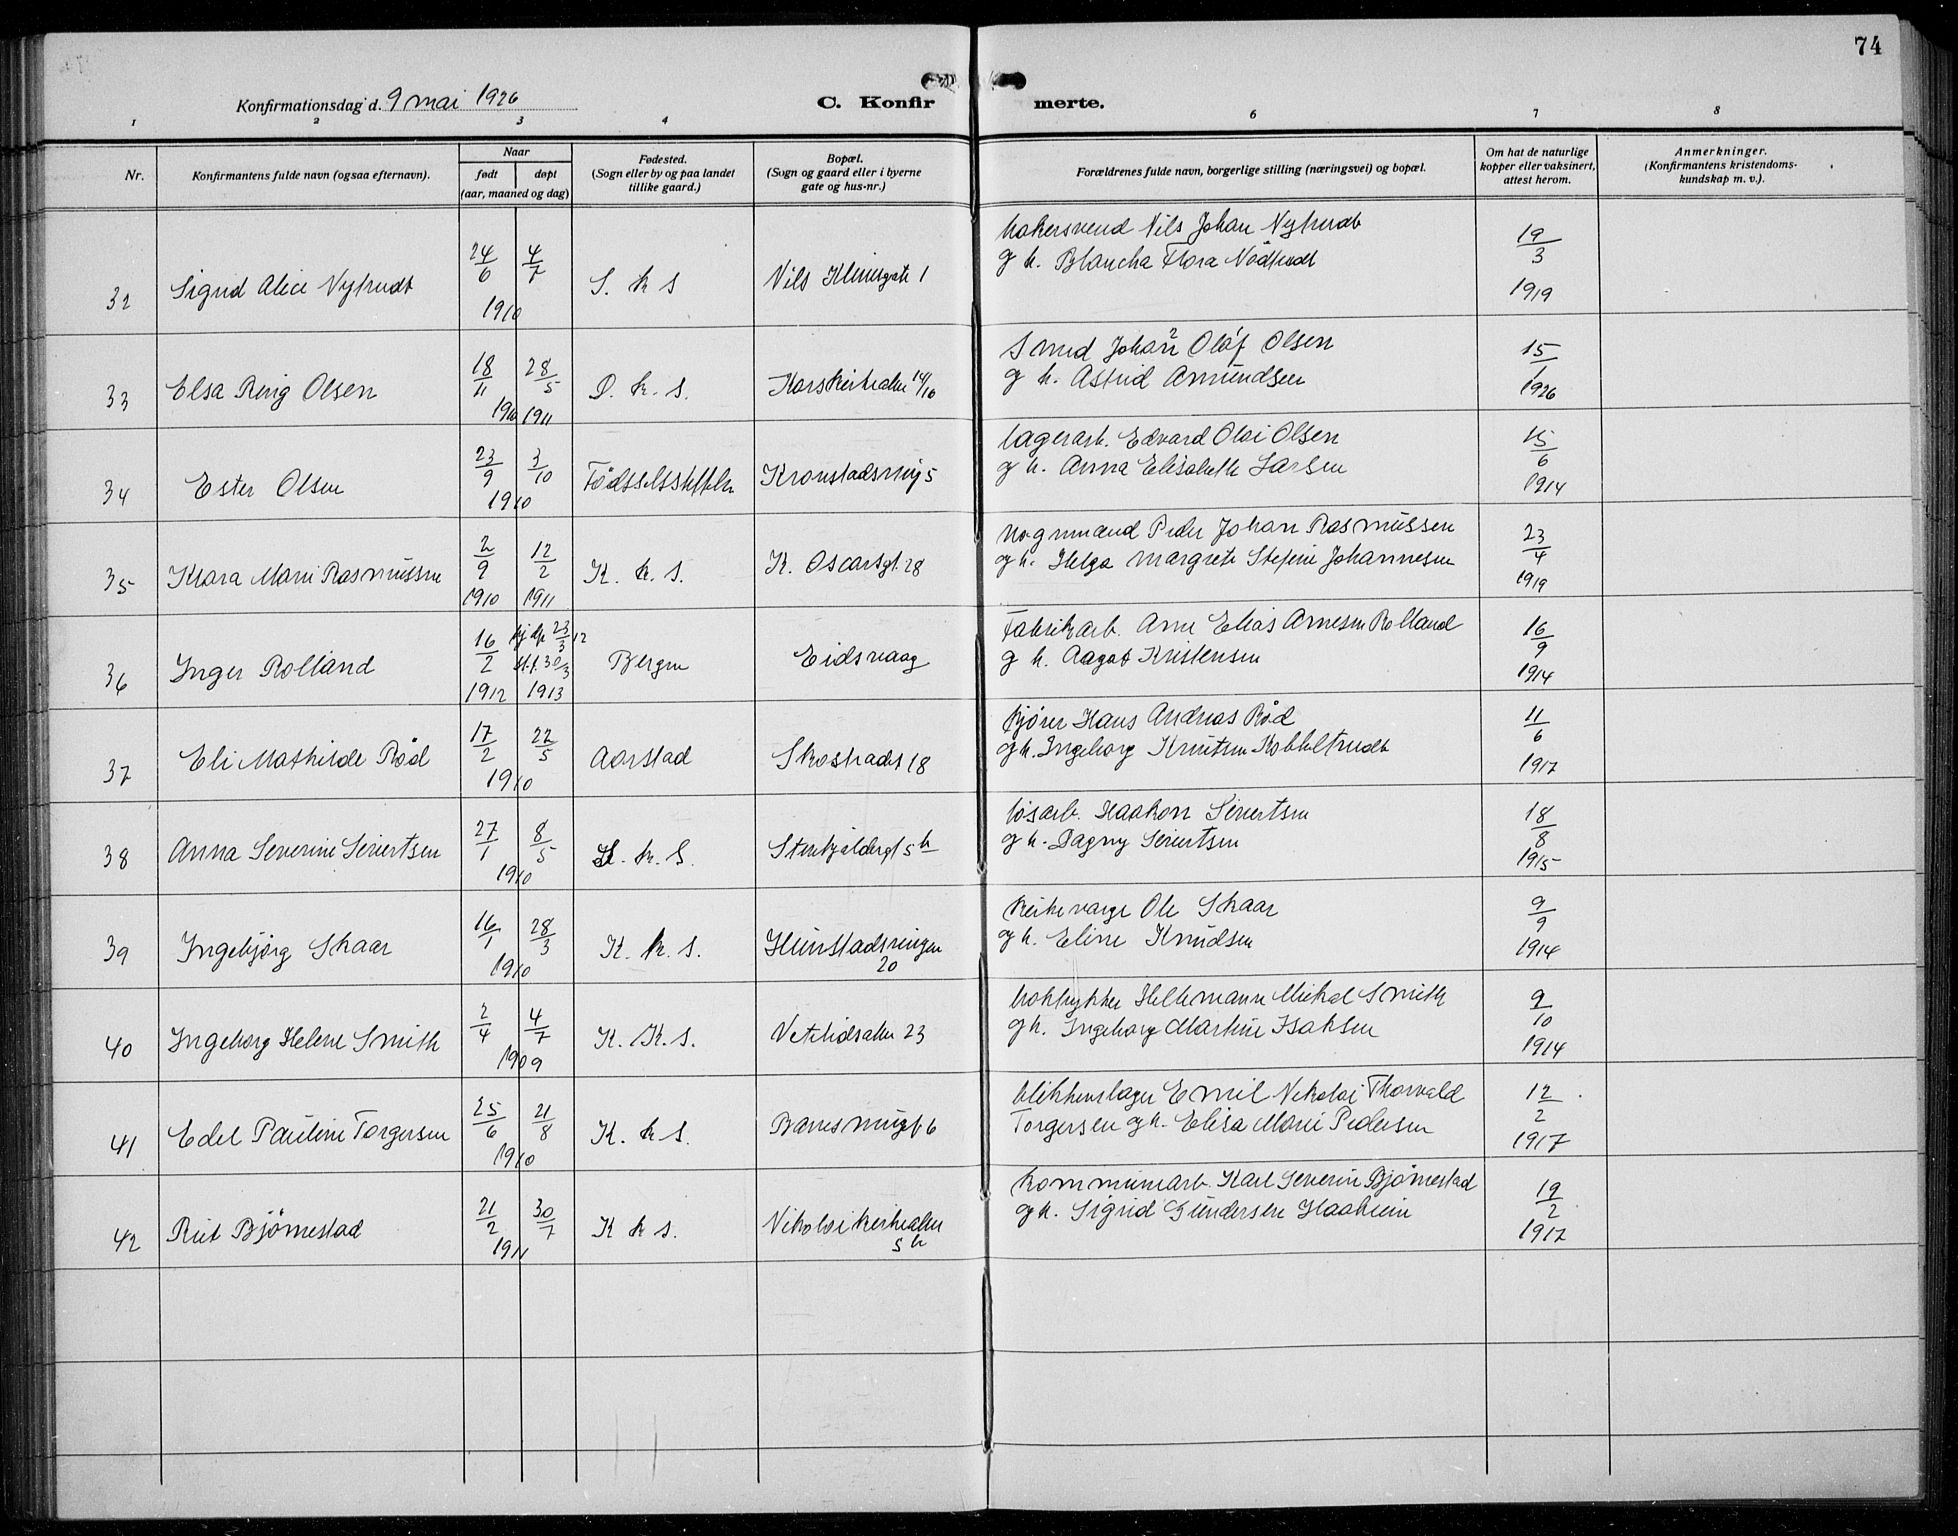 74
Konfirmationsdag d. 9 mai 1926
C. Konfir merte.
1 2 3 4 6 7 8
Nr.
Konfirmantens fulde navn (ogsaa efternavn).
Naar
født døpt
(aar, maaned og dag)
Fødested.
(Sogn eller by og paa landet
tillike gaard.)
Bopæl.
(Sogn og gaard eller i byerne
gate og hus-nr.)
Forældrenes fulde navn, borgerlige stilling (næringsvei) og bopæl.
Om hat de naturlige
kopper eller vaksinert,
attest herom.
Anmerkninger.
(Konfirmantens kristendoms-
kundskap m. v.).
32 Sigrid Alice 24/6 4/7 1910 S. k S Nils Klimsgate 1
Nils Johan
og h. Blancha Flora
19/3 1919
33 Elsa Ring Olsen 18/11 1910 28/5 1911 D. k. S. Korskirkealm 14/16
Smed Johan Olaf Olsen
og h. Astrid Amundsen
15/1 1926
34 Ester Olsen 23/9 3/10 1910 Fødselsstiftelsen Kronstadsring 5
lagerarb. Edvard Olai Olsen
og h. Anna Elisabeth Larsen
15/6 1914
35 Klara Marie Rasmussen 2/9 1910 12/2 1911 K. k. S. K. Oscarsgt. 28
vognmand Peder Johan Rasmussen
og h. Helga Margrete Stefine Johannesen
23/4 1919
36 Inger Rolland 16/2 1912 hj dp 23/3 12 st. f. 30/3 1913 Bergen Eidsvaag
Fabrikarb. Arne Elias Arnesen Rolland
og h. Aagot Kristensen
16/9 1914
37 Eli Mathilde Rød 17/2 22/5 1910 Aarstad Skostradet 18
kjører Hans Andreas Rød
og h. Ingeborg Knutsen
11/6 1917
38 Anna Severine Sivertsen 27/1 8/5 1910 k. S. Stenkjeldergt 5 h
løsarb. Haakon Sivertsen
og h. Dagny Sivertsen
18/8 1915
39 Ingebjørg Skaar 16/1 28/3 1910 K. k. S. Hunstadsringen
20
kirkevarge Ole Skaar
og h. Eline Knudsen
9/9 1914
40 Ingeborg Helene Smith 2/4 4/7 1909 K. K. S. Vetrlidsalm 23
boktrykker Mikal Smith
og h. Ingeborg Martine Isaksen
9/10 1914
41 Edel Pauline Torgersen 25/6 21/8 1910 K. k S.
blikkenslager Emil Nikolai Thorvald
Torgersen og h. Elisa Marie Pedersen
12/2 1917
42 Rut Bjørnestad 21/2 30/7 1911 K k S. Nikolaikirkealm
5 h
kommunearb. Karl Severin Bjørnestad
og h. Sigrid Gundersen Haaheim
19/2 1917